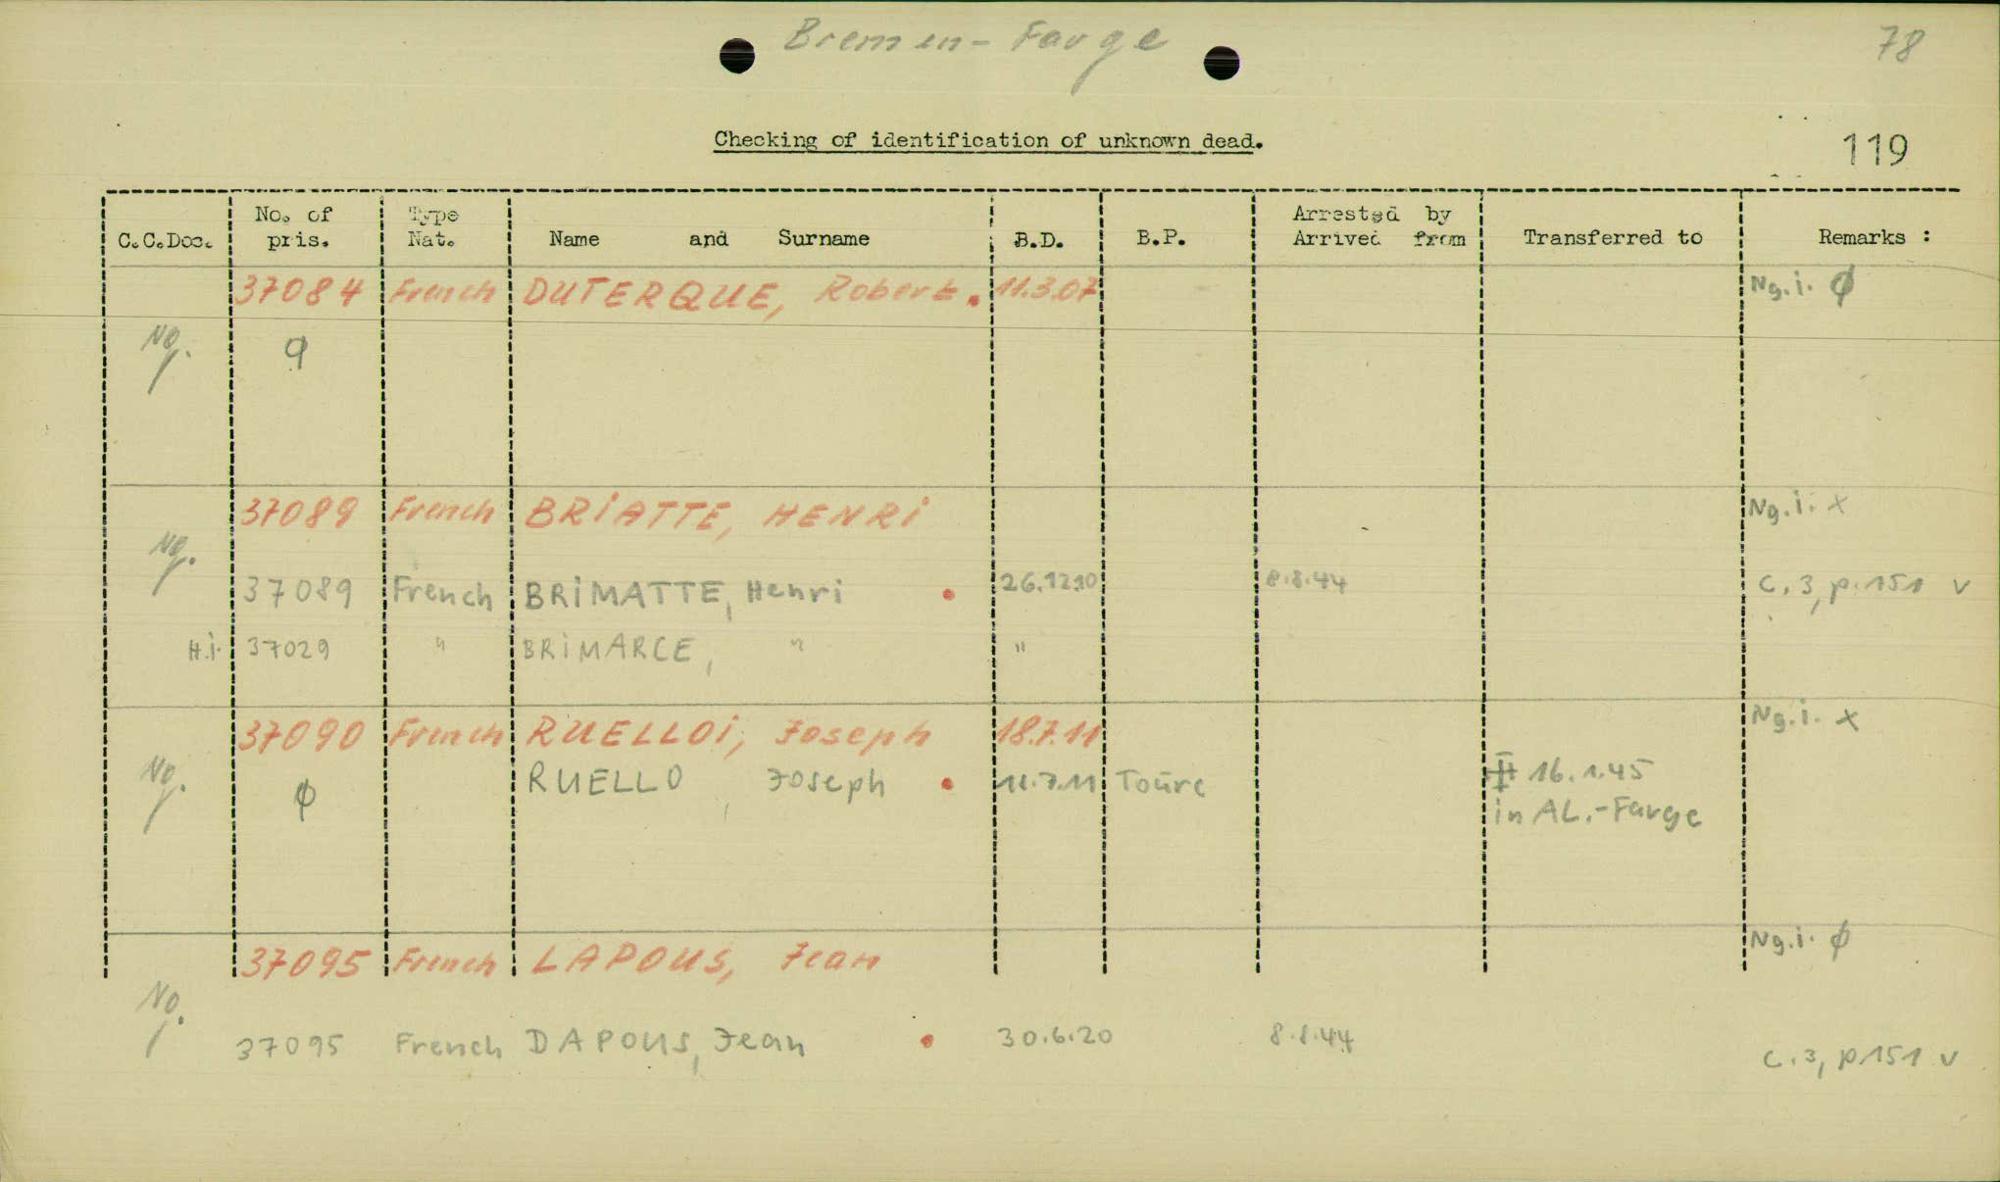 Bremen-Farge
78
Checking of identification of unknown dead.
119
C.C.Doc. No. of pris. Type Nat. Name and Surname B.D. B.P. Arrested by Arrived from Transferred to Remarks :
37084 French DUTERQUE, Robert. 11.3.07 Ng.i. ϕ
Ng.
37089 French BRIATTE, HENRI Ng.i. x
Ng.
37089 French BRIMATTE, Henri 26.12.10 8.8.44 C.3, p.151 v
H.i. 37029 " BRIMARCE, " "
37090 French RUELLOI, Joseph 18.7.11 Ng.i. x
Ng. ϕ RUELLO, Joseph 11.7.11 Toure 16.1.45
in AL.-Farge
37095 French LAPOUS, Jean Ng.i. ϕ
Ng.
37095 French DAPOUS, Jean 30.6.20 8.8.44 C.3, p.151 v